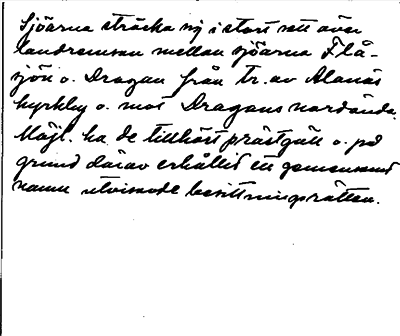 Sjöarna sträcka sig i stort sett över
landremsan mellan sjöarna Flå-
sjön o. Dragan från tr. av Alanäs
kyrkby o. mot Dragans nordända.
Möjl. ha de tillhört prästgån o. på
grund därav erhållit ett gemensamt
namn utvisande besittningsrätten.